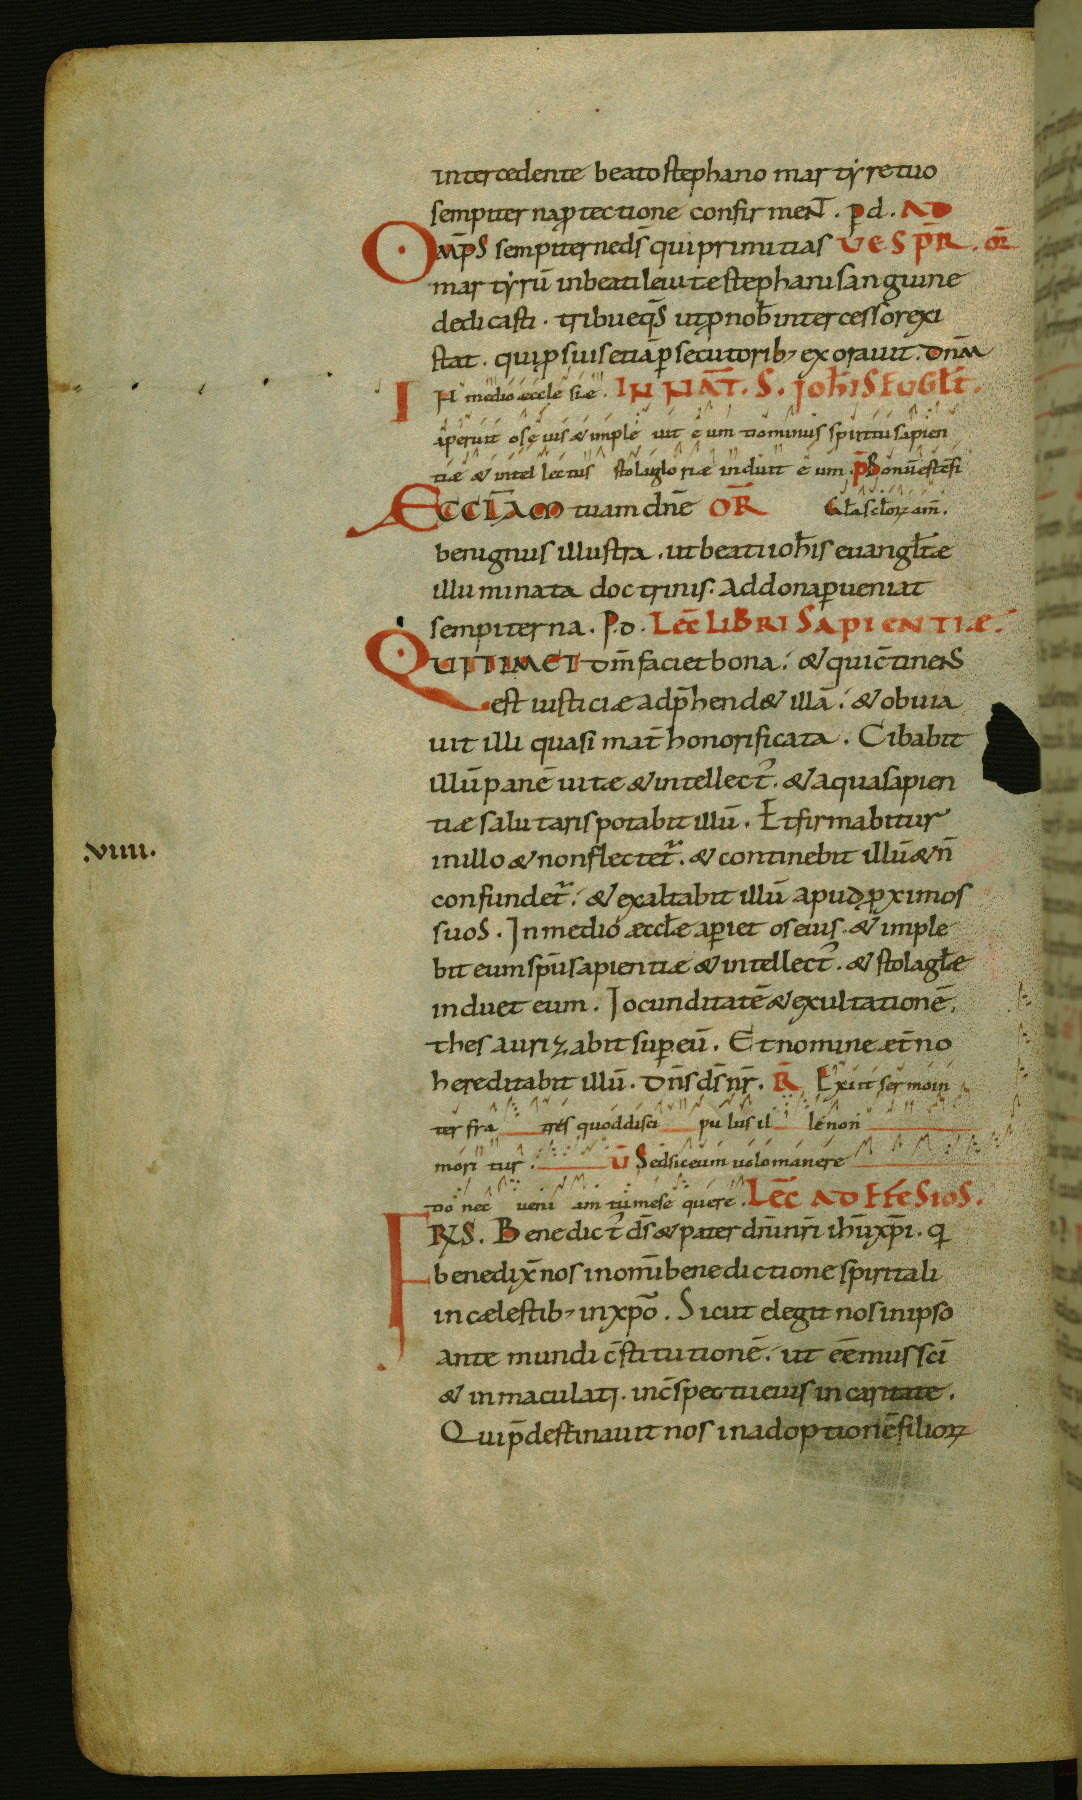 intercedente beato stephano martyre tuo
sempiterna ꝓtectione confirmeNT. p̄d. AD
OMP̄S sempiterne ds̄ qui primitias VESP̄R. OR̄
martyrū in beati leuitę stephani sanguine
dedicasti. tribue qs̄ ut ꝓ nob̄ intercessor exi
stat. qui ꝓ suis etiā ꝑsecutorib; exorauit. dn̄m
IN medio ęccle siæ. IN NAT̄. S. JOH̄IS EUGL̄T.
aperuit os eius & imple uit e um dominus spiritu sapien
tiæ & intel lectus stola glo riæ induit e um. P̄S Bonū est c̄fi
ECCL̄AM tuam dn̄e OR̄ Gl̄a scl̄oꝝ am̄.
benignus illustra. ut beati ioh̄is euangl̄tæ
illuminata doctrinis. ad dona ꝑueniat
sempiterna. P.d. LEC̄ LIBRI SAPIENTIÆ.
QUI TIMET dm̄ faciet bona. & qui c̄tinens
est iusticiæ adp̄hendet illā. & obuia
uit illi quasi mat̄ honorificata. Cibabit
illū pane uitæ & intellect᷒. & aqua sapien
tiæ salutaris potabit illū. Et firmabitur
.VIIII.
in illo & non flectet᷑. & continebit illū & n̄
confundet᷑. & exaltabit illū apud ꝓximos
suos. In medio æccl̄æ aꝑiet os eius. & imple
bit eum spū sapientiæ & intellect᷒. & stola gl̄æ
induet eum. Iocunditatē & exultationē.
thesaurizabit suꝑ eū. Et nomine æt̄no
hereditabit illū. dn̄s ds̄ nr̄. R̄ Exiit sermo in
ter fra tres quod disci pulus il le non
mori tur. V̄ Sed sic eum uolo manere
do nec ueni am tu me se quere. LEC̄ AD EFFESIOS.
FRS. Benedict᷒ ds̄ & pater dn̄i nr̄i ih̄u xp̄i. qi
benedix̄ nos in omī benedictione spiritali
in cælestib; in xp̄o. Sicut elegit nos in ipso
ante mundi c̄stitutionē. ut eēmus sc̄i
& inmaculati. in c̄spectu eius in caritate.
Qui p̄destinauit nos in adoptionē filioꝝ